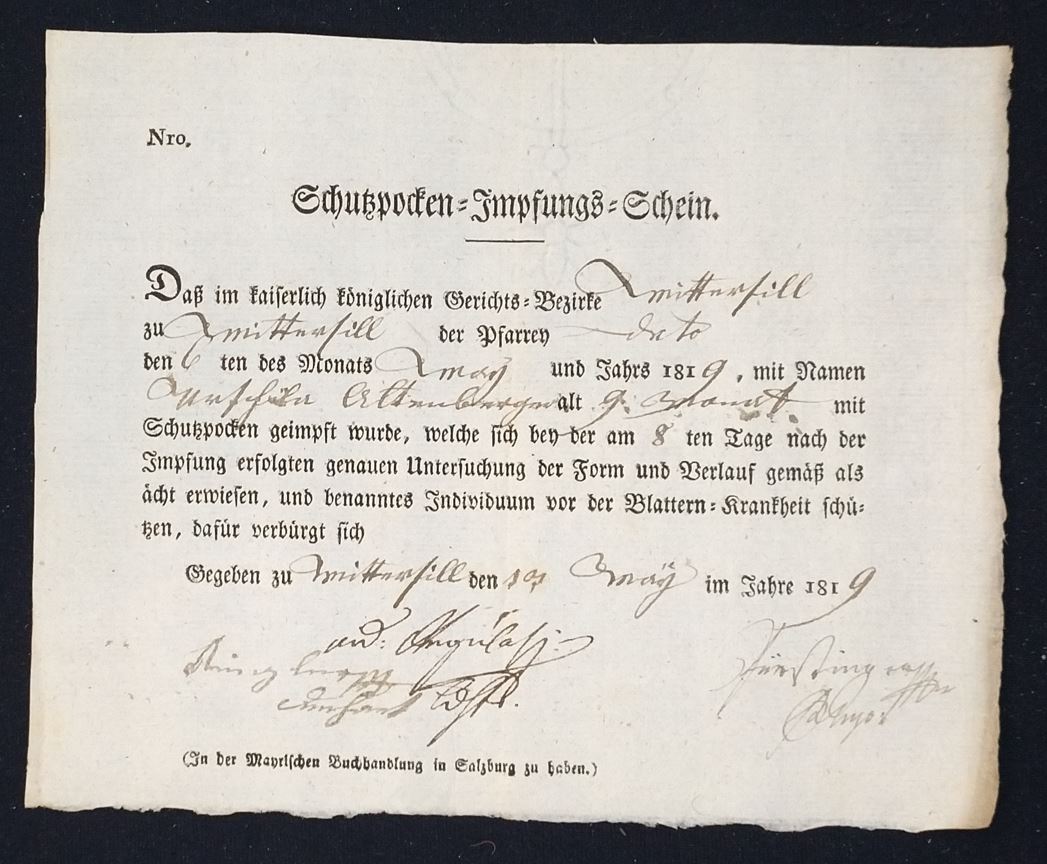 Nro.
Schutzpocken-Impfungs-Schein.
Daß im kaiserlich königlichen Gerichts-Bezirke Mittersill
zu Mittersill der Pfarrey deto
den 6 ten des Monats May und Jahrs 1819, mit Namen
Urschula Altenberger alt 9 Monat mit
Schutzpocken geimpft wurde, welche sich bey der am 8 ten Tage nach der
Impfung erfolgten genauen Untersuchung der Form und Verlauf gemäß als
ächt erwiesen, und benanntes Individuum vor der Blattern-Krankheit schü-
tzen, dafür verbürgt sich
Gegeben zu Mittersill den May im Jahre 1819
(In der Mayrischen Buchhandlung in Salzburg zu haben.)